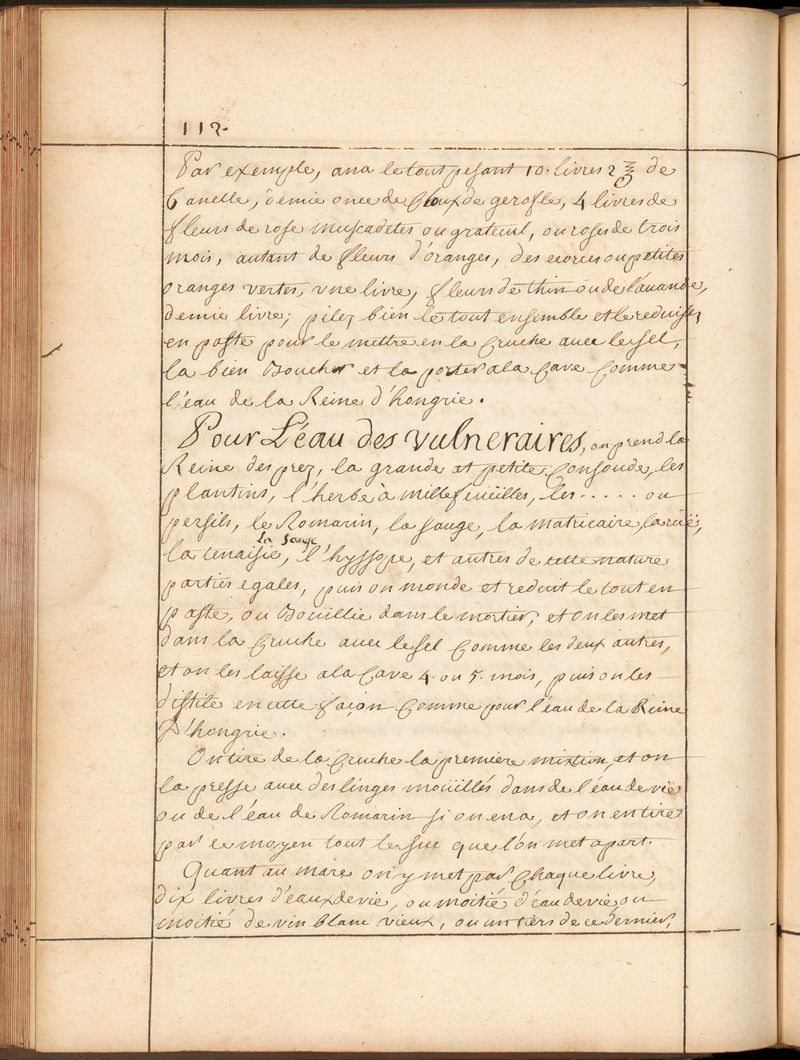 112.
Par exemple, ana le tout pesant 10. livres 2 ʒ de
Canelle, demie once de Cloux de gerofle, 4 livres de
fleurs de rose muscadetes ou grateul, ou roses de trois
mois, autant de fleurs d'oranges, des ecorces ou petites
oranges vertes, vne livre, fleurs de thin ou de lauande,
demie livre; pilez bien le tout ensemble et le reduisez
en paste pour le mettre en la Cruche auec le sel,
la bien Boucher et la porter a la Cave Comme
l'eau de la Reine d'hongrie.
Pour L'éau des vulneraires, on prend la
Reine des prez, la grande et petite Consoude, les
plantins, l'herbe à millefeüeilles, les ..... ou
persils, le Romarin, la sauge, la matricaire, la ruë,
La sauge
la tenaisie, l'hyssope, et autres de cette nature
parties egales, puis on monde et reduit le tout en
paste, ou Bouillie dans le mortier, et on les met
dans la Cruche auec le sel Comme les deux autres,
et on les laisse a la Cave 4. ou 5. mois, puis on les
distile en cette façion Comme pour l'eau de la Reine
d'hongrie.
On tire de la Cruche la premiere mixtion, et on
la presse auec des linges moüillés dans de l'éau de vie
ou de l'éau de Romarin si on en a, et on en tire
par ce moyen tout le suc que l'on met apart.
Quant au marc on y met par Chaque livre,
dix livres d'eaux de vie, ou moitié d'éau de vie, ou
moitié de vin blanc vieux, ou un tiers de ce dernier,